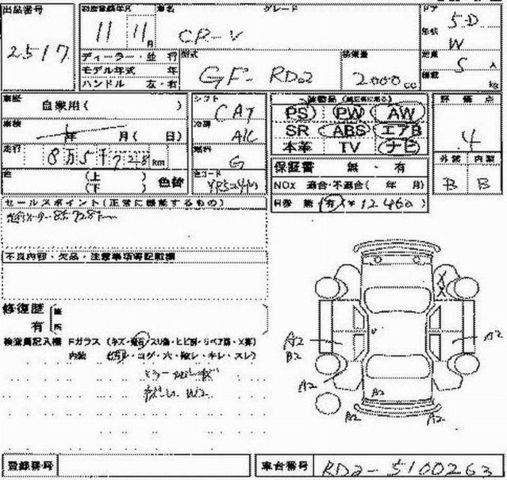 出品番号
2517
初度登録年月
11 11月
車名
CR-V
グレード
ドア
5D
形状
W
ディーラー・並行
モデル年式 年
ハンドル 左・右
型式
GF-RD2
排気量
2000cc
定員
5人
積載
kg
車歴
自家用( )
シフト
CAT
車検
年 月( 日)
冷房
A/C
走行
km
燃料
G
色
(上)
(下)
色替
カラーコード
PS PW AW
SR ABS エアB
本革 TV ナビ
評価点
4
外装 内装
B B
保証書 無・有
NOx 適合・不適合( 年 月)
R券 無・有 ¥12460
セールスポイント(正常に機能するもの)
不良内容・欠品・注意事項等記載欄
修復歴 箇
有 所
検査員記入欄 Fガラス(キズ・飛石・スリ傷・ヒビ割・リペア跡・X算)
内装 ・コゲ・穴・破レ・キレ・スレ)
A2
B2
A2
A2
A2
A2
A2
A2
登録番号
車台番号
RD2-5100263